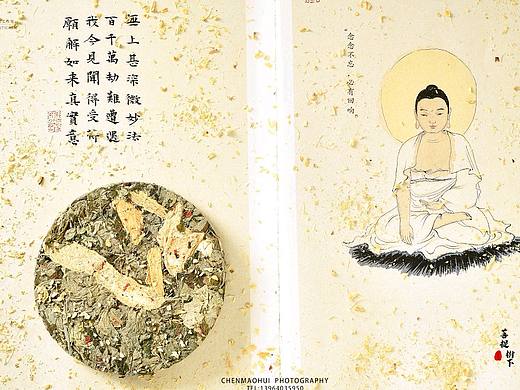 無上甚深微妙法
百千萬劫難遭遇
我今見聞得受持
願解如來真實意
念念不忘，必有回响。
菩提树下
CHENMAOHUI PHOTOGRAPHY
TEL:13964035950